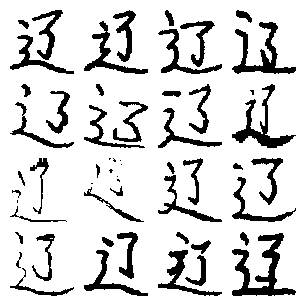 辽辽辽辽
辽辽辽辽
辽辽辽辽
辽辽辽辽